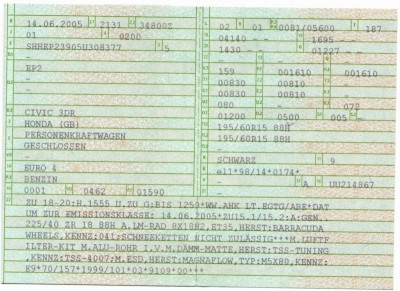 14.06.2005 2131 34800Z
02 01 0081/05600 187
01 0200
04140 - - 1695 - -
SHHEP23905U308377 5
1430 - - 01227 - -
-
EP2
159 001610 001610
-
00830 00810 -
-
00830 00810 -
080 - 072
CIVIC 3DR
01200 0500 005 -
HONDA (GB)
195/60R15 88H
PERSONENKRAFTWAGEN
195/60R15 88H
GESCHLOSSEN
-
-
SCHWARZ 9
EURO 4
e11*98/14*0174*
BENZIN
- A UU214867
0001 0462 01590
ZU 18-20:H.1555 U.ZU G:BIS 1259*WW.AHK LT.EGTG/ABE*DAT
UM ZUR EMISSIONSKLASSE: 14.06.2005*ZU15.1/15.2:A:GEN.
225/40 ZR 18 88H A.LM-RAD 8X18H2,ET35,HERST:BARRACUDA
WHEELS,KENNZ:041;SCHNEEKETTEN NICHT ZULÄSSIG***M.LUFTF
ILTER-KIT M.ALU-ROHR I.V.M.DÄMM-MATTE,HERST:TSS-TUNING
,KENNZ:TSS-4007;M.ESD,HERST:MAGNAFLOW,TYP:M5X80,KENNZ:
E9*70/157*1999/101*03*9109*00***